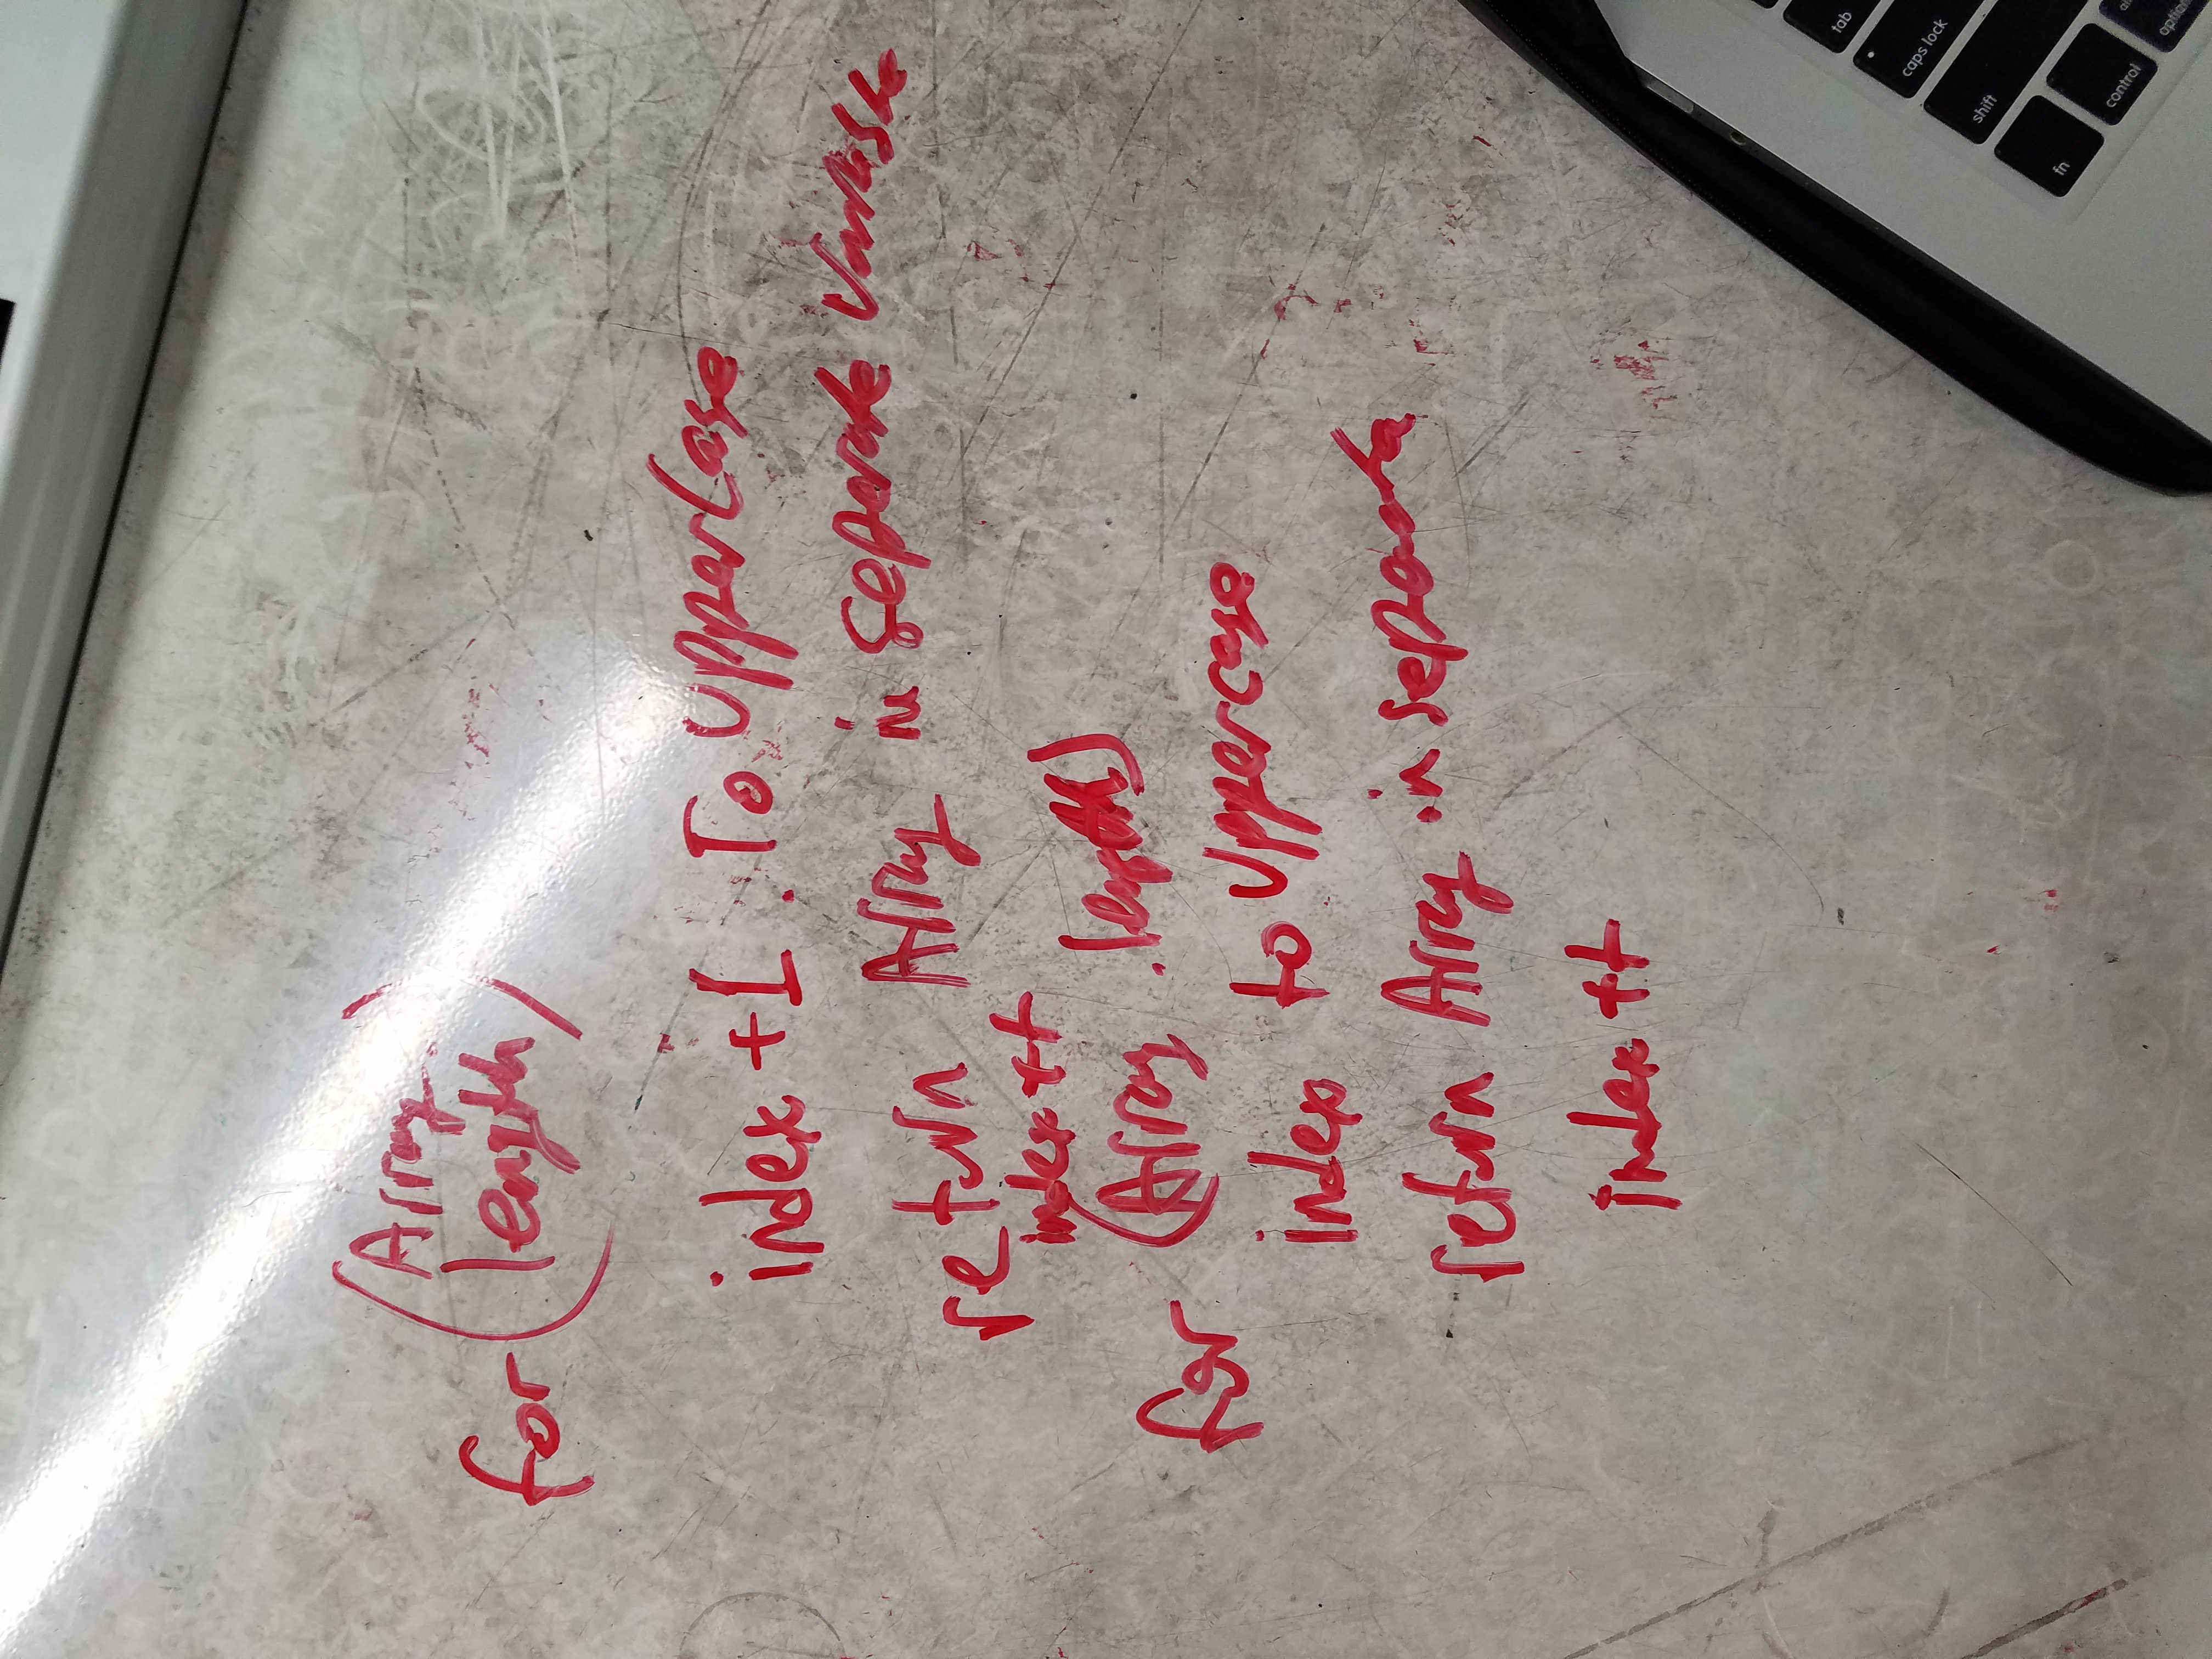 for (Array
length)
index +1 . To UpperCase
return Array in seperate Variable
index ++
for (Array .length)
index to Uppercase
return Array in seperate
index ++
tab
caps lock
shift
fn
control